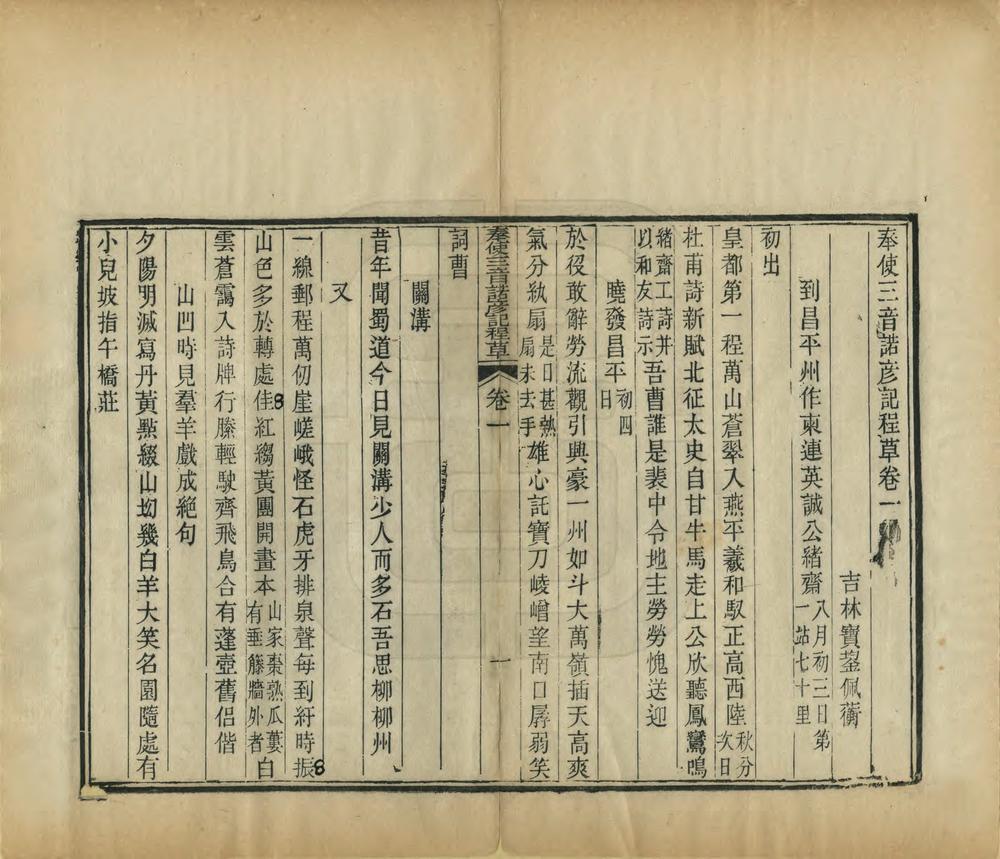 奉使三音諾彥記程草卷一
吉林寶鋆佩蘅
到昌平州作柬連英誠公緒齋八月初三日第一站七十里
初出
皇都第一程萬山蒼翠入燕平羲和馭正高西陸秋分次日
杜甫詩新賦北征太史自甘牛馬走上公欣聽鳳鸞鳴
緒齋工詩并以和友詩示吾曹誰是裴中令地主勞勞愧送迎
曉發昌平初四日
於役敢辭勞流觀引興豪一州如斗大萬嶺插天高爽
氣分紈扇是日甚熱扇未去手雄心託寶刀崚嶒望南口孱弱笑
奉使三音諾彥記程草 卷一 一
詞曹
關溝
昔年聞蜀道今日見關溝少人而多石吾思柳柳州
又
一線郵程萬仞崖嵯峨怪石虎牙排泉聲每到紆時振
山色多於轉處佳紅縐黃團開畫本山家棗熟瓜蔞有垂籐牆外者白
雲蒼靄入詩牌行縢輕駛齊飛鳥合有蓬壺舊侶偕
山凹時見羣羊戲成絕句
夕陽明滅寫丹黃點綴山坳幾白羊大笑名園隨處有
小兒坡指午橋莊